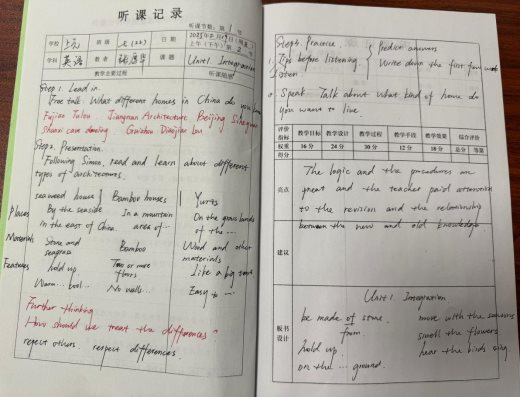 听课记录
听课节数：第 1 节
学校 上元 班级 七(22) 日期 2025年2月19日
上午(下午) 第 2 节
学科 英语 教者 课题 Unit 1 Integration
教学主要过程 听课随想
Step 1. Lead in.
Free talk: What different homes in China do you know
Fujian Tulou. Jiangnan Architecture Beijing Siheyuan
shanxi cave dwelling. Guizhou Diaojiao Lou
Step 2. Presentation.
Following Simon, read and learn about different
types of architectures.
seaweed house Bamboo houses Yurts
Places By the seaside In a mountain On the grass lands
in the east of China. area of... of the ...
Materials Stone and Bamboo Wood and other
seagrass materials
Features hold up Two or more Like a big tent
floors
Warm... cool... No walls... Easy to ...
Further thinking
How should we treat the differences?
reject others. respect differences.
Step 3. Practice.
1. Tips before listening Predict answers
Write down the first few words
Listen
2. Speak. Talk about what kind of home do
you want to live.
评价指标 教学目标 教学设计 教学过程 教学手段 教学效果 综合评价
权重 16分 24分 30分 12分 18分 总分 等第
得分
亮点 The logic and the procedures are
great and the teacher paid attention
to the revision and the relationship
between the new and old knowledge
建议
板书设计
Unit 1. Integration
be made of stone. move with the seasons
from smell the flowers
hold up hear the birds sing
on the ... ground.